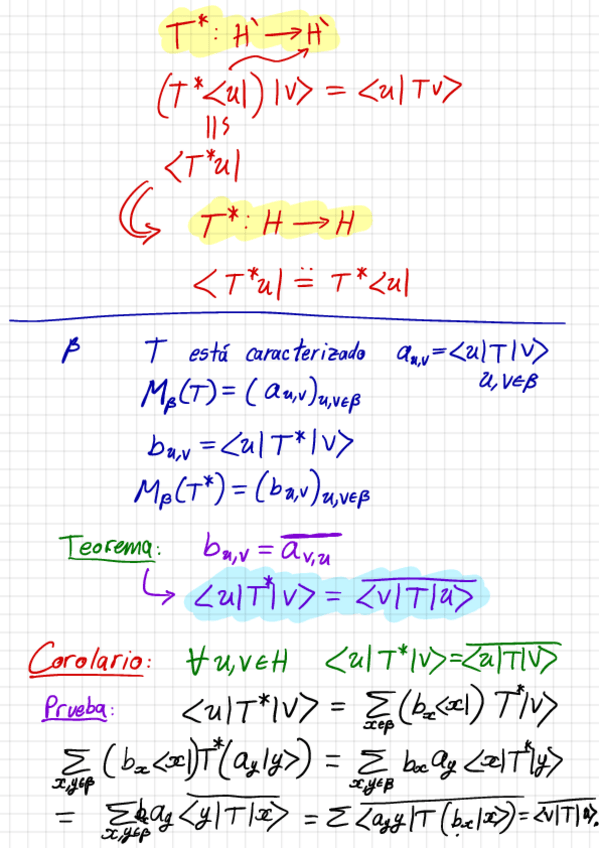 T* : H` → H`
(T*<u|) |v> = <u|Tv>
||s
<T*u|
T* : H → H
<T*u| ≝ T*<u|
β T está caracterizado a_{u,v} = <u|T|v>
u,v∈β
M_β(T) = (a_{u,v})_{u,v∈β}
b_{u,v} = <u|T*|v>
M_β(T*) = (b_{u,v})_{u,v∈β}
Teorema: b_{u,v} = \overline{a_{v,u}}
↳ <u|T*|v> = \overline{<v|T|u>}
Corolario: ∀ u,v∈H <u|T*|v> = \overline{<u|T|v>}
Prueba: <u|T*|v> = Σ_{x∈β} (b_x<x|) T*|v>
Σ_{x,y∈β} (b_x<x|)T*(a_y|y>) = Σ_{x,y∈β} b_x a_y <x|T*|y>
= Σ_{x,y∈β} b_x a_y \overline{<y|T|x>} = Σ \overline{<a_y y|T(b_x|x>)} = \overline{<v|T|u>}.